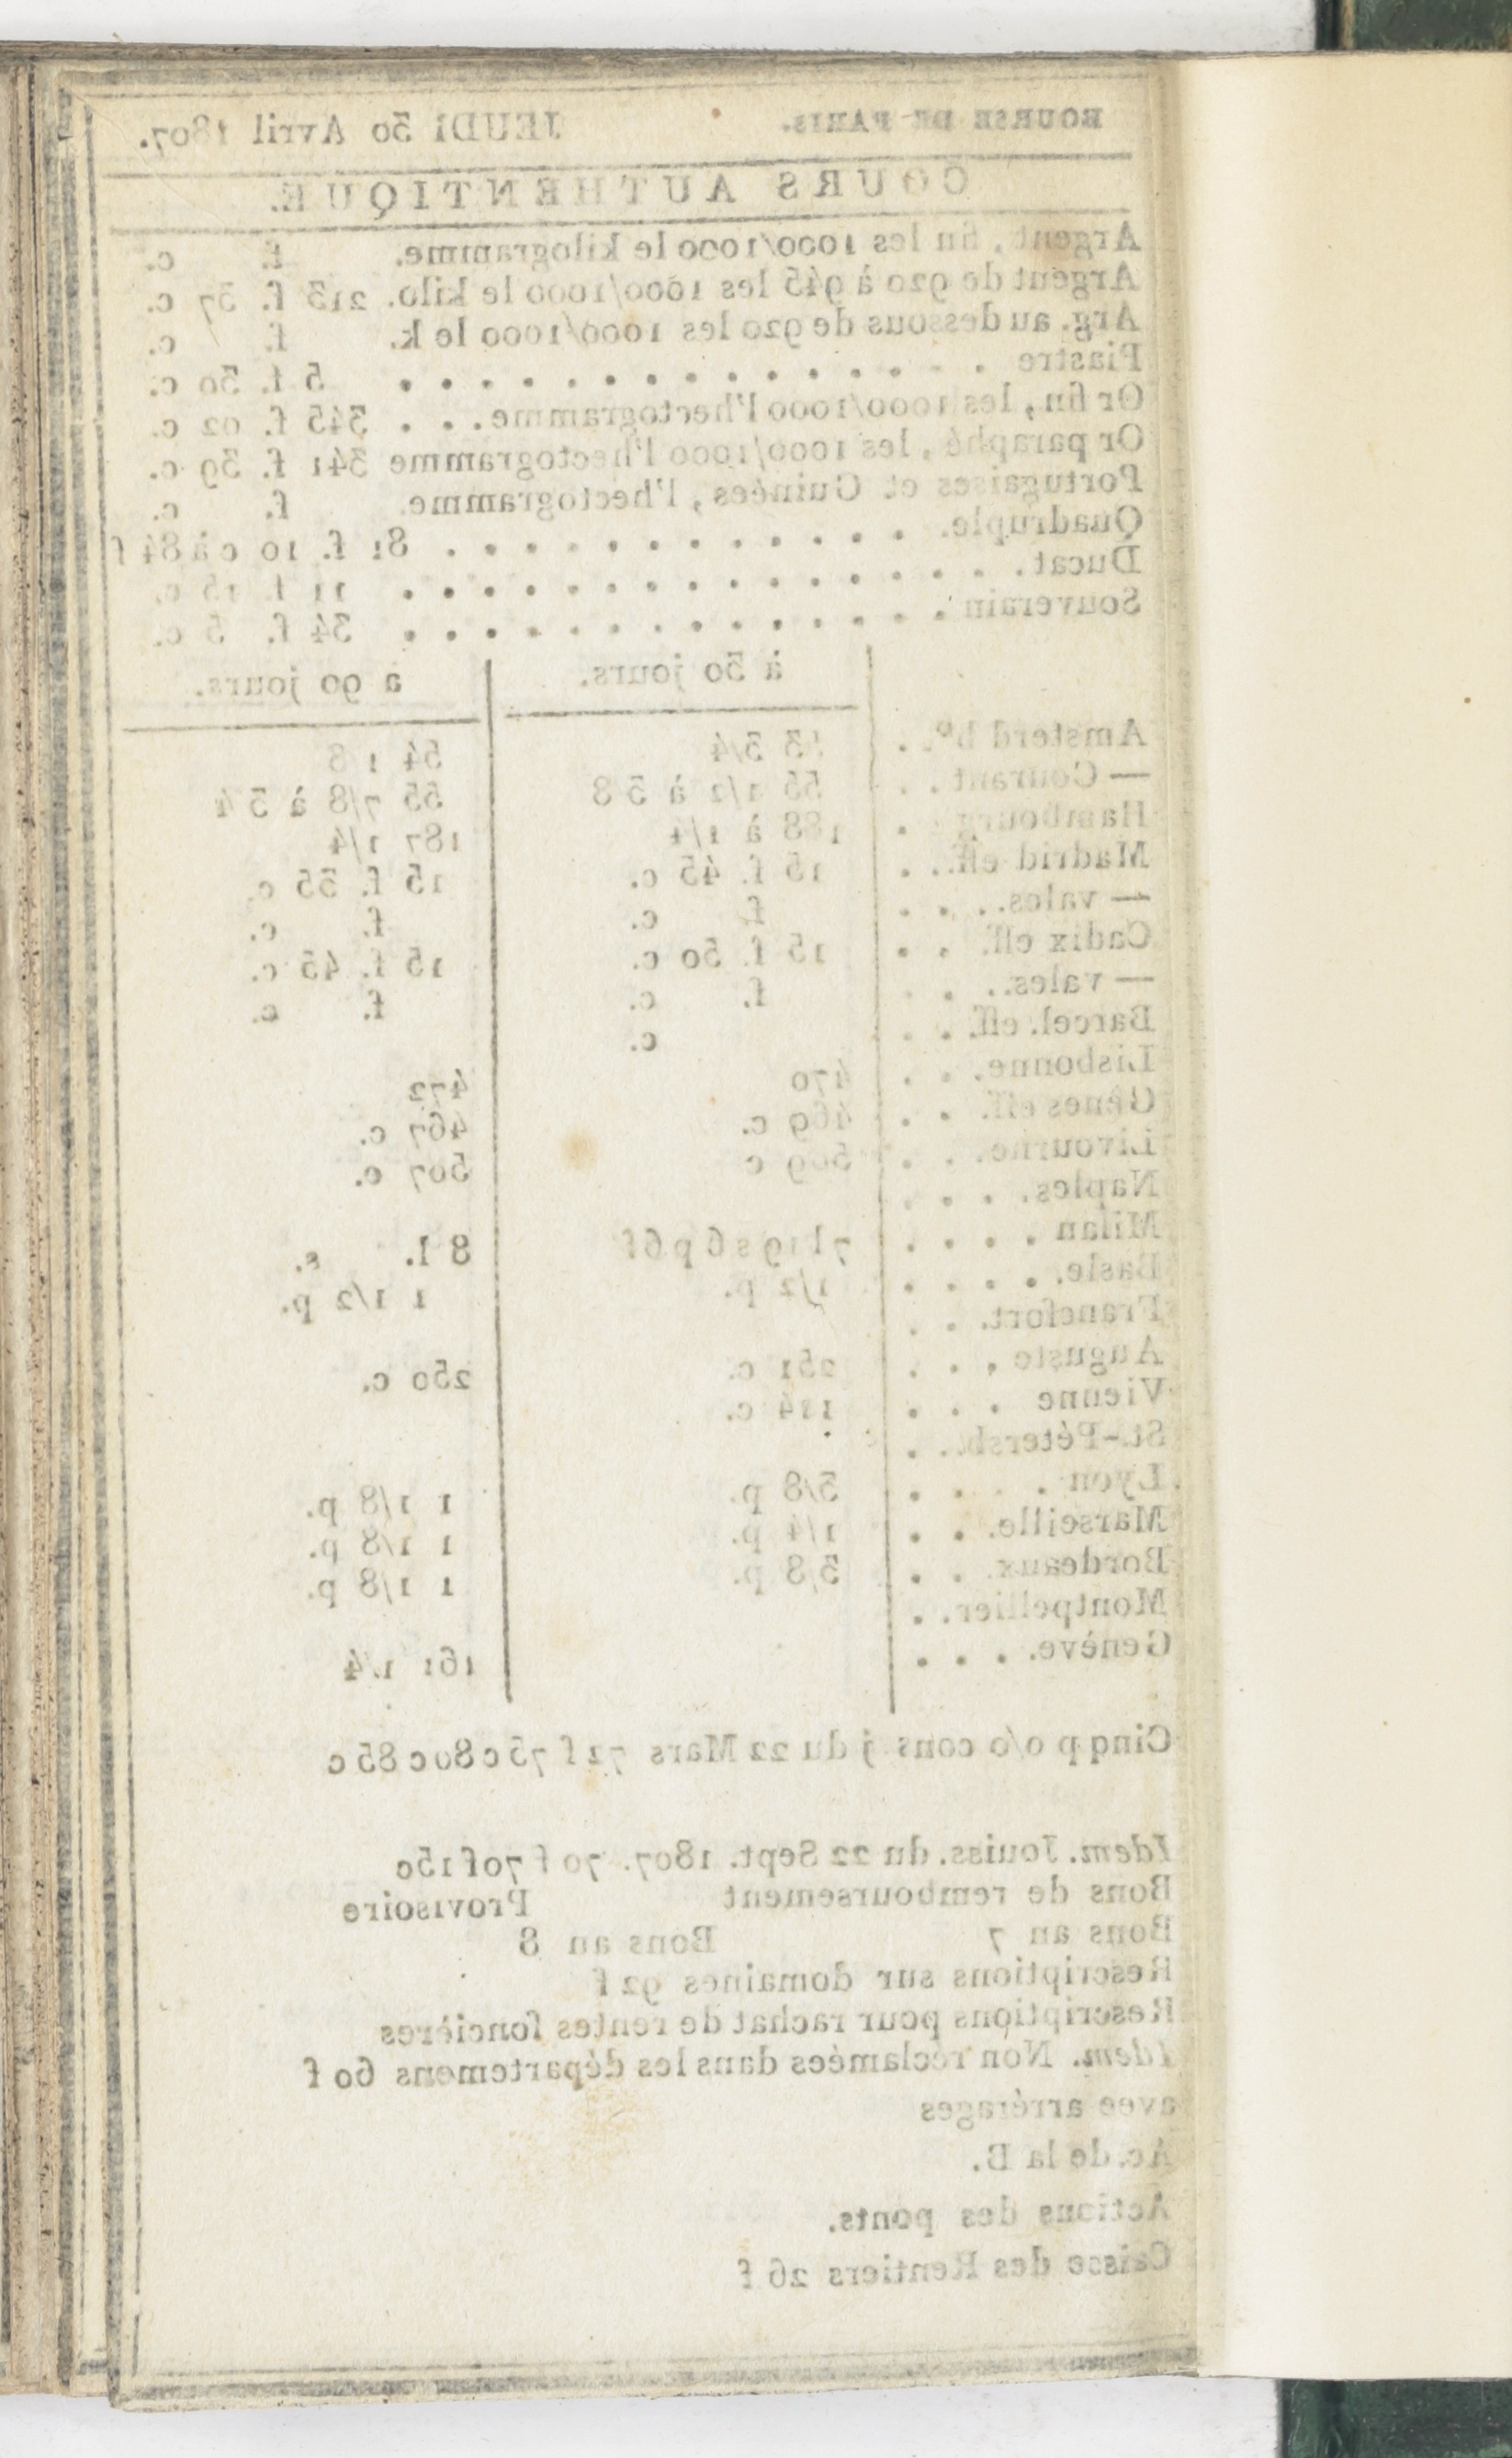 BOURSE DE PARIS. JEUDI 30 Avril 1807.
COURS AUTHENTIQUE.
Argent, fin les 1000/1000 le kilogramme. f. c.
Argent de 920 à 945 les 1000/1000 le kilo. 213 f. 37 c.
Arg. au dessous de 920 les 1000/1000 le k. f. c.
Piastre . . . . . . . . . . . . . . . 5 f. 30 c.
Or fin, les 1000/1000 l'hectogramme. . . . 343 f. 02 c.
Or paraphé, les 1000/1000 l'hectogramme 341 f. 39 c.
Portugaises et Guinées, l'hectogramme. f. c.
Quadruple. . . . . . . . . . . . . 81 f. 10 c à 84 f
Ducat. . . . . . . . . . . . . . . . 11 f. 15 c.
Souverain . . . . . . . . . . . . . . 34 f. 5 c.
à 30 jours. a 90 jours.
Amsterd bº. . 3/4 54 1 8
— Courant . . 55 1/2 à 3 8 55 7/8 à 3 4
Hambourg . . 188 à 1/4 187 1/4
Madrid eff. . . 15 f. 45 c. 15 f. 35 c.
— vales. . . . f. c. f. c.
Cadix eff. . . 15 f. 50 c. 15 f. 45 c.
— vales. . . . f. c. f. c.
Barcel. eff. . . c.
Lisbonne. . . 470 472
Gênes eff. . . 469 c. 467 c.
Livourne. . . 509 c 507 c.
Naples. . . .
Milan . . . . 7 l 19 s 6 p 6 f 8 l. s.
Basle. . . . . 1/2 p. 1 1/2 p.
Francfort. . .
Auguste . . . 251 c. 250 c.
Vienne . . . 114 c.
St.-Pétersb. .
Lyon . . . . 3/8 p. 1 1/8 p.
Marseille. . . 1/4 p. 1 1/8 p.
Bordeaux. . . 3/8 p. 1 1/8 p.
Montpellier. .
Genève. . . . 161 1/4
Cinq p o/o cons j du 22 Mars 72 f 75 c 80 c 85 c
Idem. Jouiss. du 22 Sept. 1807. 70 f 70f 15c
Bons de remboursement Provisoire
Bons an 7 Bons an 8
Rescriptions sur domaines 92 f
Rescriptions pour rachat de rentes foncières
Idem. Non réclamées dans les départemens 60 f
avec arrérages
Ac. de la B.
Actions des ponts.
Caisse des Rentiers 26 f